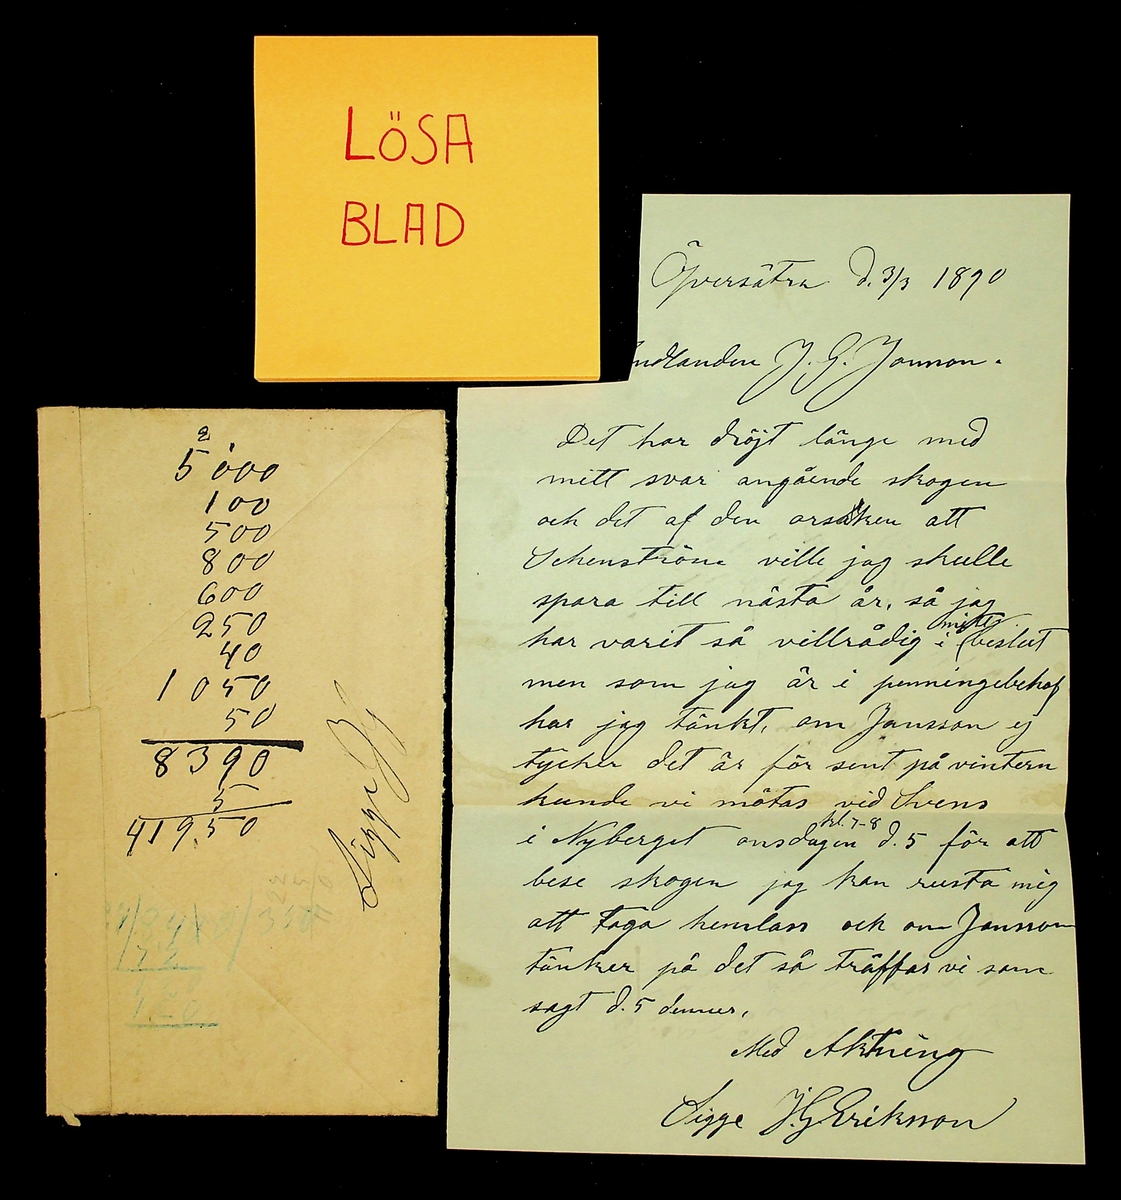 LÖSA
BLAD
Öfversätra d. 3/3 1890
ndlanden J. G. Jansson.
Det har dröjt länge med
mitt svar angående skogen
och det af den orsaken att
Schenström ville jag skulle
spara till nästa år, så jag
har varit så villrådig i mitt beslut
men som jag är i penningebehof
har jag tänkt, om Jansson ej
tycker det är för sent på vintern
kunde vi mötas vid Svens
i Nyberget onsdagen kl. 7-8 d. 5 för att
bese skogen jag kan rusta mig
att taga hemlass och om Jansson
tänker på det så träffas vi som
sagt d. 5 dennes,
Med Aktning
Sigge J. G. Eriksson
2
5000
100
500
800
600
250
40
1050
50
8390
5
41950
Sigge